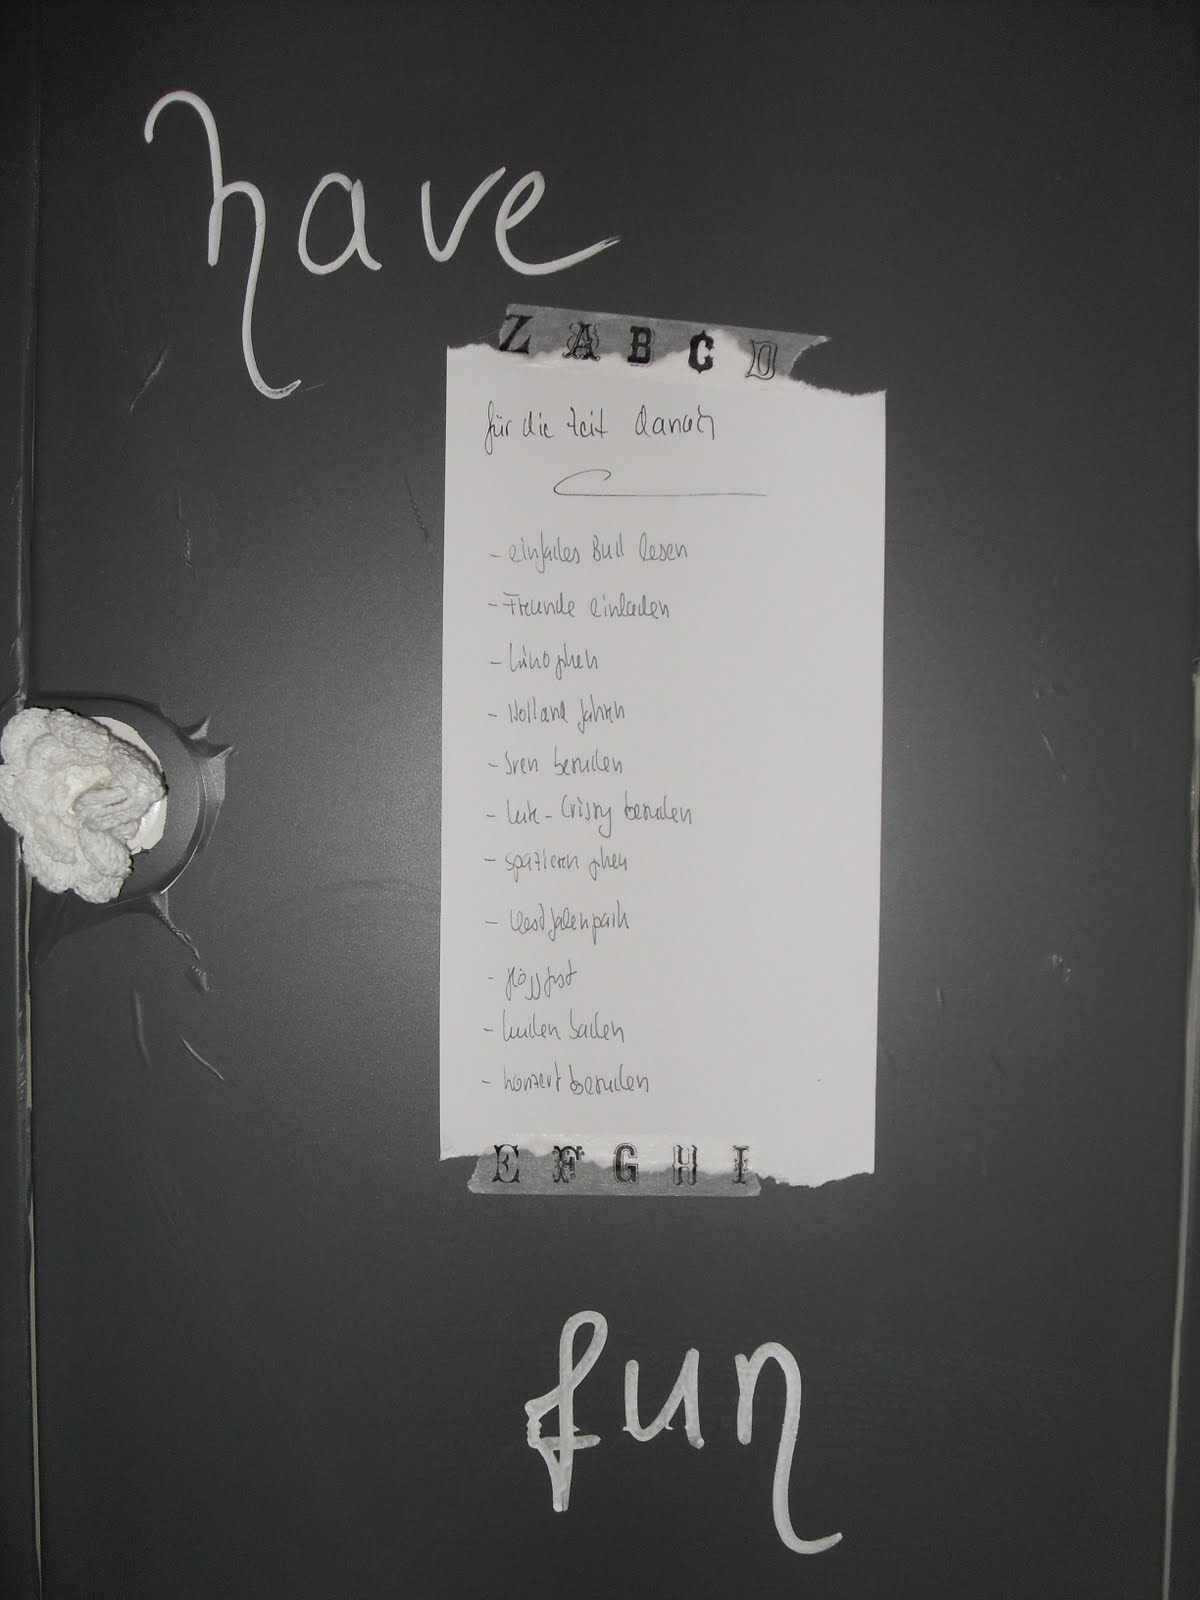 have
Z A B C D
für die Zeit danach
- einfaches Buch lesen
- Freunde einladen
- Kino gehen
- Holland fahren
- Sven besuchen
- Crissy besuchen
- spazieren gehen
- Westfalenpark
- kuchen backen
- konzert besuchen
E F G H I
fun